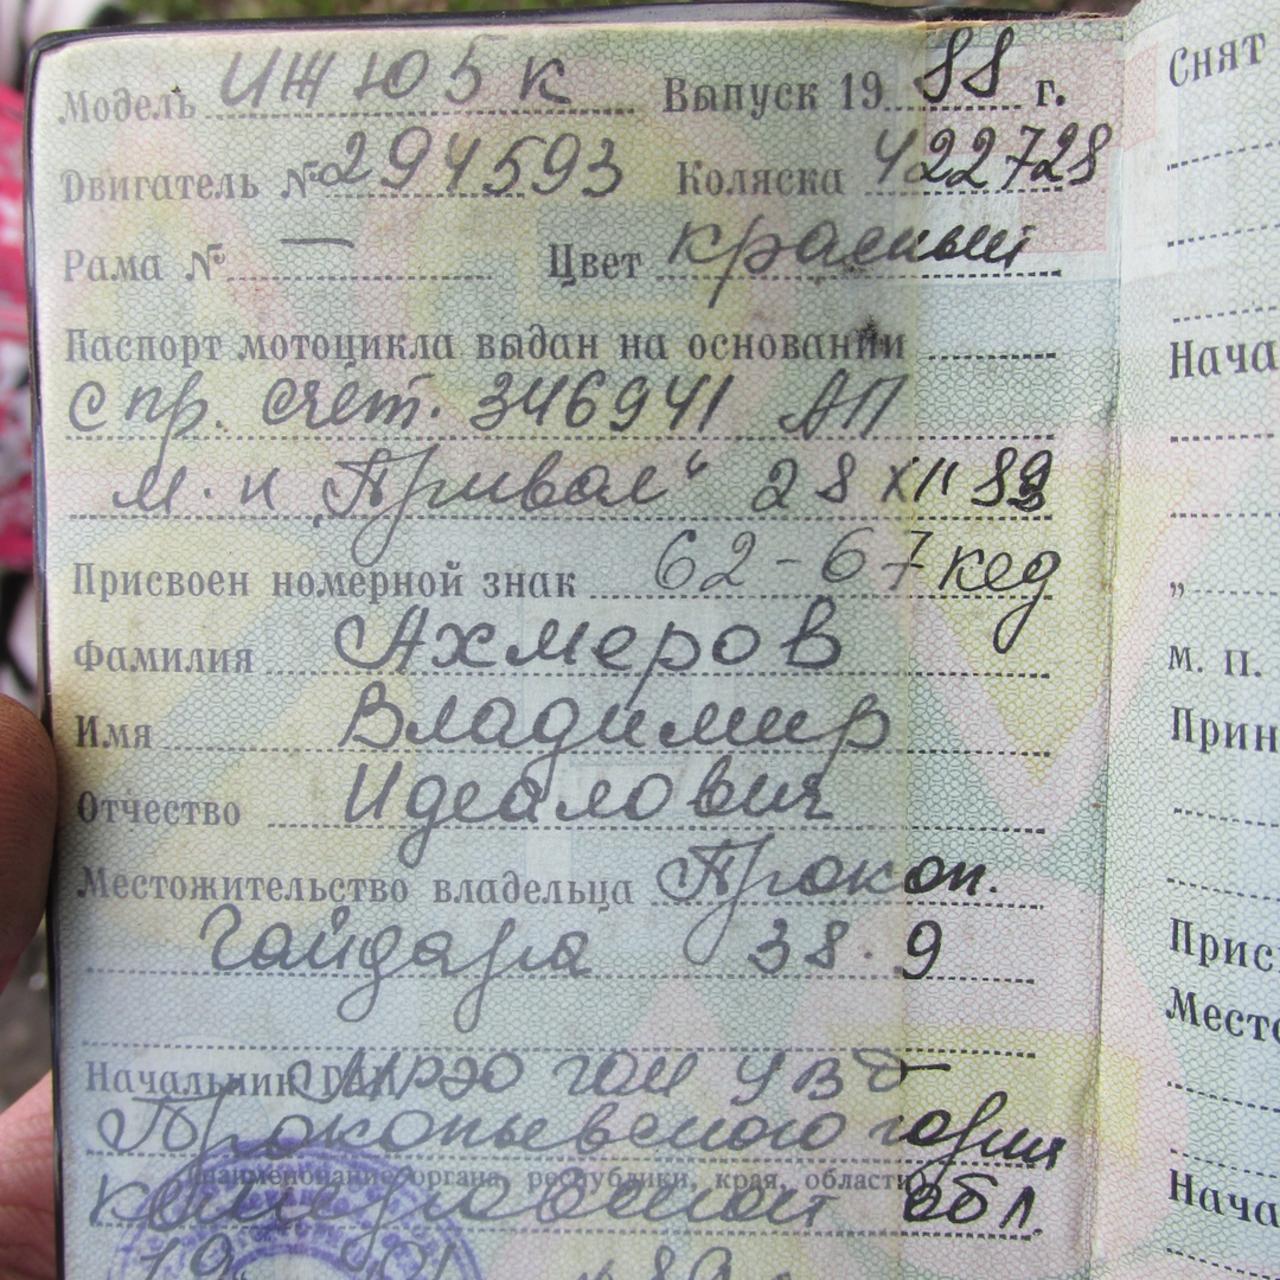 Модель ИЖ Ю 5 К Выпуск 19 88 г.
Двигатель № 294593 Коляска 422728
Рама № — Цвет красный
Паспорт мотоцикла выдан на основании
спр. счёт. 346941 АП
м. н „Привал“ 28 XII 89
Присвоен номерной знак 62-67 кед
Фамилия Ахмеров
Имя Владимир
Отчество Идеалович
Местожительство владельца Прокоп.
Гайдара 38.9
Начальник ГАИ МРЭО ГАИ УВД
Прокопьевского горис
(наименование органа, республики, края, области)
Кемеровской обл.
Снят
Нача
„
м. п.
Прин
Прис
Место
Нача